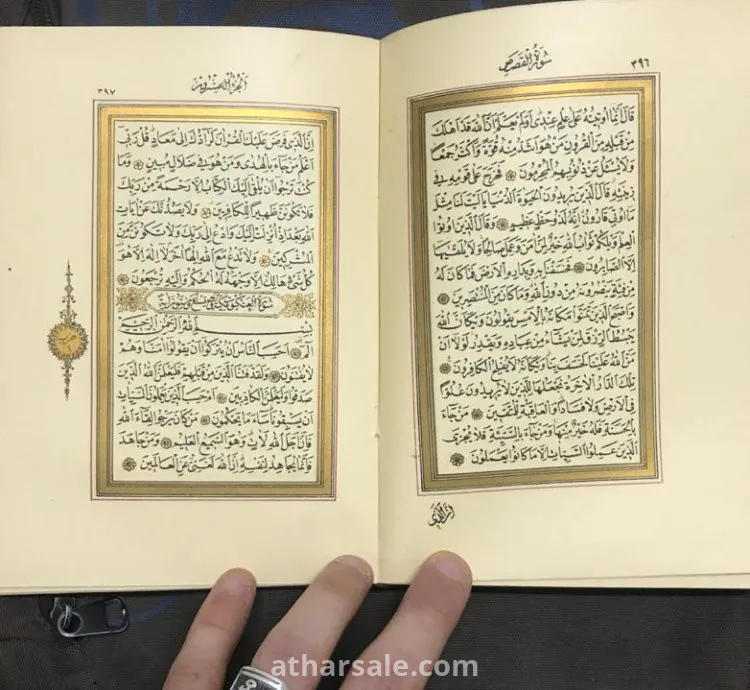 ٣٩٦
سورة القصص
قال انما اوتيته على علم عندي اولم يعلم ان الله قد اهلك
من قبله من القرون من هو اشد منه قوة واكثر جمعا
ولا يسئل عن ذنوبهم المجرمون فخرج على قومه في
زينته قال الذين يريدون الحيوة الدنيا يا ليت لنا مثل
ما اوتي قارون انه لذو حظ عظيم وقال الذين اوتوا
العلم ويلكم ثواب الله خير لمن امن وعمل صالحا ولا يلقيها
الا الصابرون فخسفنا به وبداره الارض فما كان له
من فئة ينصرونه من دون الله وما كان من المنتصرين
واصبح الذين تمنوا مكانه بالامس يقولون ويكان الله
يبسط الرزق لمن يشاء من عباده ويقدر لولا ان
من الله علينا لخسف بنا ويكانه لا يفلح الكافرون
تلك الدار الاخرة نجعلها للذين لا يريدون علوا
في الارض ولا فسادا والعاقبة للمتقين من جاء
بالحسنة فله خير منها ومن جاء بالسيئة فلا يجزى
الذين عملوا السيئات الا ما كانوا يعملون
ان الذي
الجزء العشرون
٣٩٧
ان الذي فرض عليك القران لرادك الى معاد قل ربي
اعلم من جاء بالهدى ومن هو في ضلال مبين وما
كنت ترجوا ان يلقى اليك الكتاب الا رحمة من ربك
فلا تكونن ظهيرا للكافرين ولا يصدنك عن ايات
الله بعد اذ انزلت اليك وادع الى ربك ولا تكونن من
المشركين ولا تدع مع الله الها اخر لا اله الا هو
كل شئ هالك الا وجهه له الحكم واليه ترجعون
سورة العنكبوت مكية وهي تسع وستون اية
بسم الله الرحمن الرحيم
الم احسب الناس ان يتركوا ان يقولوا امنا وهم
لا يفتنون ولقد فتنا الذين من قبلهم فليعلمن الله الذين
صدقوا وليعلمن الكاذبين ام حسب الذين يعملون السيئات
ان يسبقونا ساء ما يحكمون من كان يرجوا لقاء الله
فان اجل الله لات وهو السميع العليم ومن جاهد
فانما يجاهد لنفسه ان الله لغني عن العالمين
atharsale.com